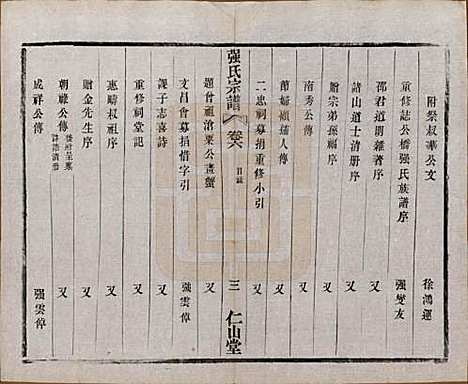 附祭叔華公文 徐鴻運
重修誌公橋强氏族譜序 强燮友
邵君道朋雜著序 又
諸山道士清册序 又
贈宗弟孫福序 又
南秀公傳 又
節婦顧孺人傳 又
二忠祠募捐重修小引 又
强氏宗譜 卷六 目錄 三 仁山堂
題曾祖洛棠公畫蟹 又
文昌會募捐惜字引 强雲倬
課子志喜詩 又
重修祠堂記 又
惠疇叔祖序 又
贈金先生序 又
朝聽公傳 又
成祥公傳 强雲倬